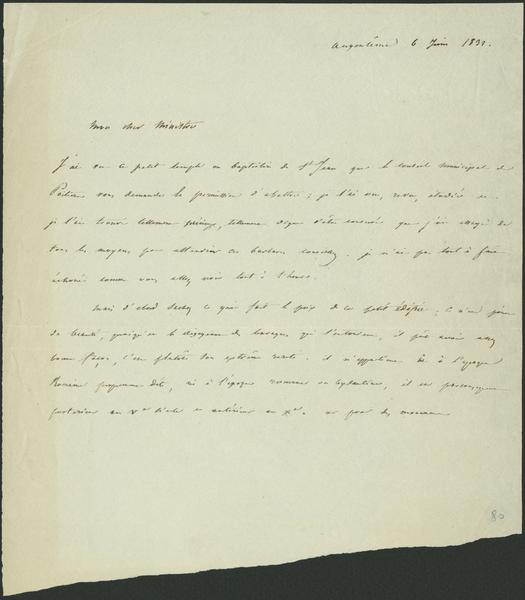 Angoulême 6 Juin 1833.
Mon cher Ministre
J'ai vu ce petit temple ou baptistère de St Jean que le conseil municipal de
Poitiers vous demande la permission d'abattre ; je l'ai vu, revu, étudié et
je l'ai trouvé tellement précieux, tellement digne d'être conservé que j'ai essayé de
tous les moyens pour attendrir ces barbares conseillers. je n'ai pas tout à fait
échoué comme vous allez voir tout à l'heure.
Mais d'abord sachez ce qui fait le prix de ce petit édifice ; ce n'est point
sa beauté, quoique les qui l'entourent, il ait assez
bonne façon, c'est plutôt son extrême rareté. il n'appartient ni à l'époque
Romaine proprement dite, ni à l'époque romane ou byzantine, il est
postérieur au Vme siècle et antérieur au Xme. or pour des monumens
80